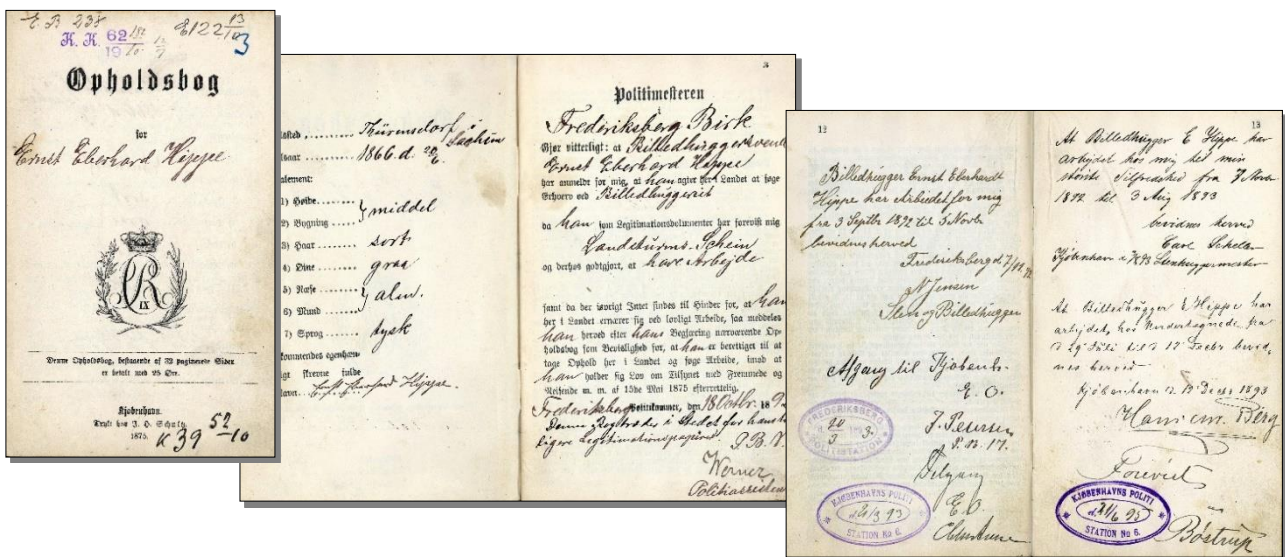 E. B 238
K. K. 62
E122 13/10
3
Opholdsbog
for
Ernst Eberhard Hippe
IX
Denne Opholdsbog, bestaaende af 32 paginerede Sider
er betalt med 25 Øre.
Kjøbenhavn.
Trykt hos J. H. Schultz
1875.
K 39 52/10
Thürmsdorf i
Sachsen
1866. d.
1) Høide
2) Bygning
middel
3) Haar ........ sort
4) Øine ........ graa
5) Næse
6) Mund
alm.
7) Sprog ........ tysk
fulde
Ernst Eberhard Hippe.
3
Politimesteren
Frederiksberg Birk
Gjør vitterligt: at Billedhuggersvend
Ernst Eberhard Hippe
har anmeldt for mig, at han agter her i Landet at søge
Erhverv ved Billedhuggeriet
da han som Legitimationsdokumenter har forevist mig
Landsturms-Schein
og derhos godtgjort, at have Arbejde
samt da der iøvrigt Intet findes til Hinder for, at han
her i Landet ernærer sig ved lovligt Arbeide, saa meddeles
han herved efter hans Begjæring nærværende Op-
holdsbog som Bevislighed for, at han er berettiget til at
tage Ophold her i Landet og søge Arbeide, imod at
han holder sig Lov om Tilsynet med Fremmede og
Reisende m. m. af 15de Mai 1875 efterrettelig.
Frederiksberg Politikammer, den 18 Octbr. 189
Denne Bog træder i Stedet for hans
Legitimationspapirer.
P. B. V.
Werner
12
Billedhugger Ernst Eberhardt
Hippe har Arbeidet for mig
fra 3 Septbr 1892 til 5 Novbr
bevidnes herved
Frederiksberg d. 7/11 92
N Jensen
Sten og Billedhugger
Afgang til Kjøbenh.
E. O.
FREDERIKSBERG
POLITISTATION
J. Petersen
P. B. 17.
Tilgang
E. O.
KJØBENHAVNS POLITI
d. 21/3 93
STATION No 6.
13
At Billedhugger E Hippe har
arbejdet hos mig til min
største Tilfredshed fra 7 Novbr
1892 til 3 Aug 1893
bevidnes herved
Kjøbenhavn
At Billedhugger E Hippe har
arbejdet hos Undertegnede fra
bevid-
nes herved
Kjøbenhavn d. 13 Decbr 1893
Berg
Forevist
KJØBENHAVNS POLITI
d. 21/6 95
STATION No 6.
Bostrup